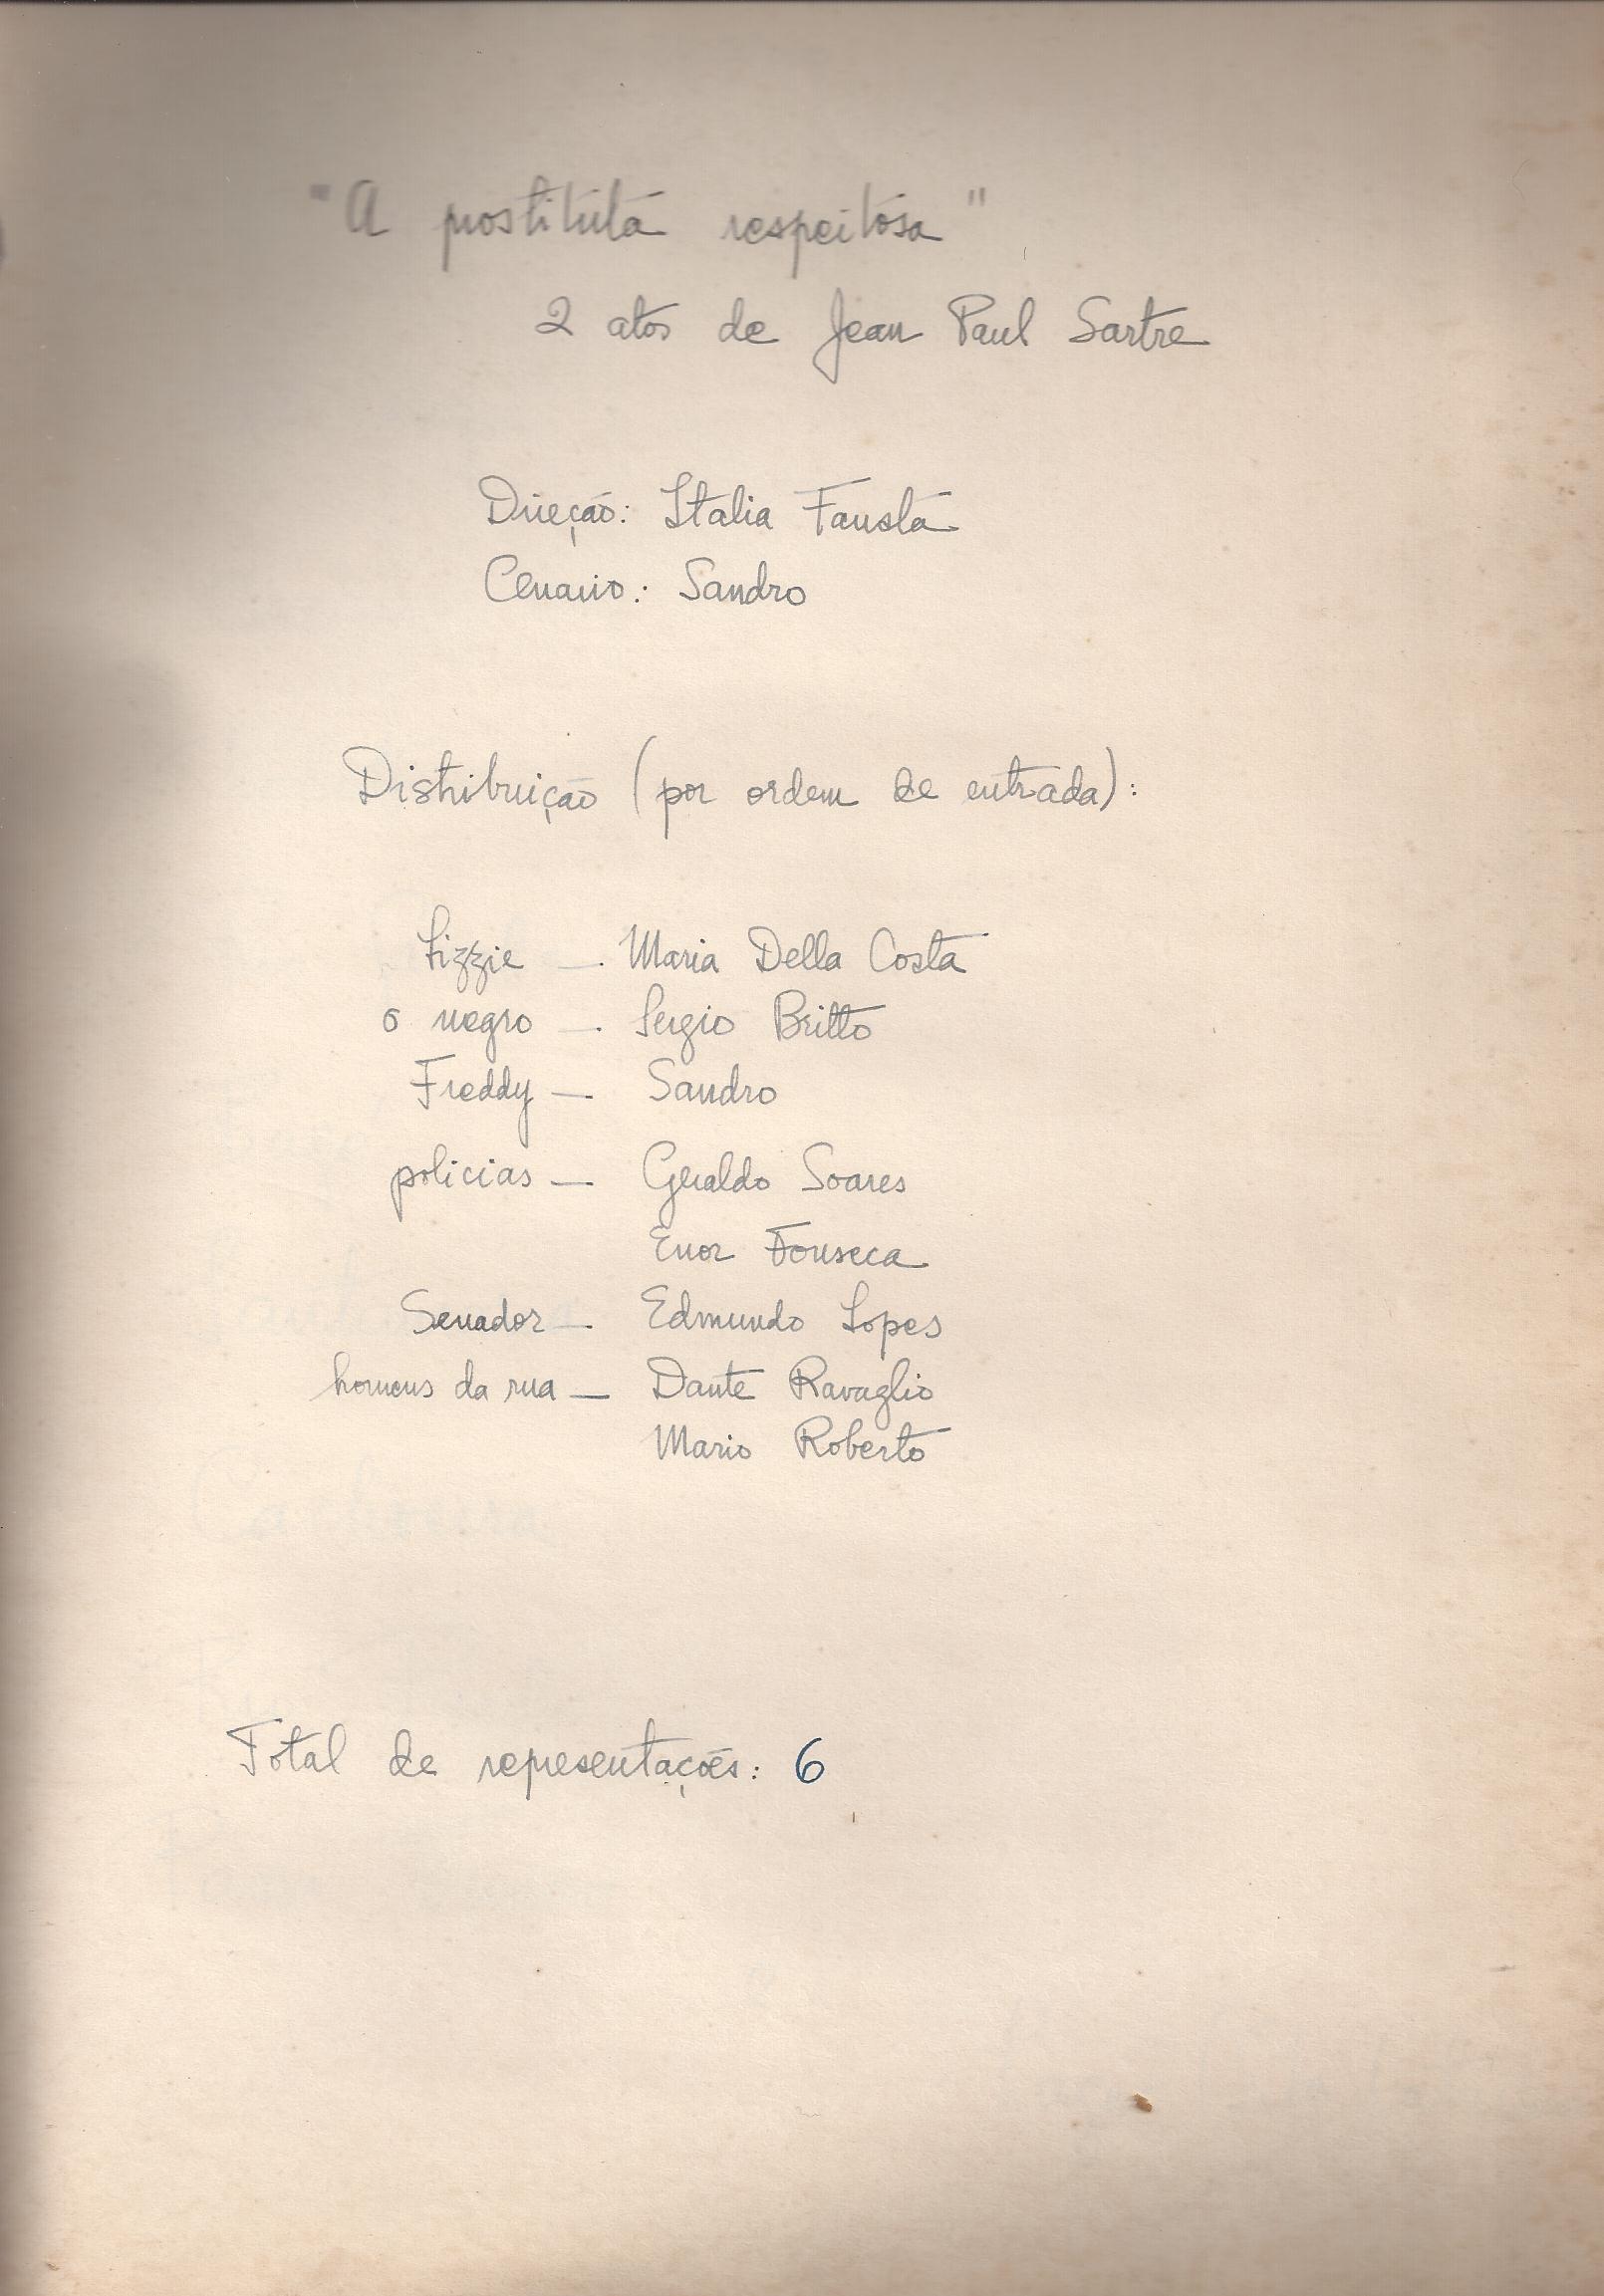 "A prostituta respeitosa"
2 atos de Jean Paul Sartre
Direção: Italia Fausta
Cenario: Sandro
Distribuição (por ordem de entrada):
Lizzie — Maria Della Costa
o negro — Sergio Britto
Freddy — Sandro
policias — Geraldo Soares
Enor Fonseca
Senador — Edmundo Lopes
homens da rua — Dante Ravaglio
Mario Roberto
Total de representações: 6